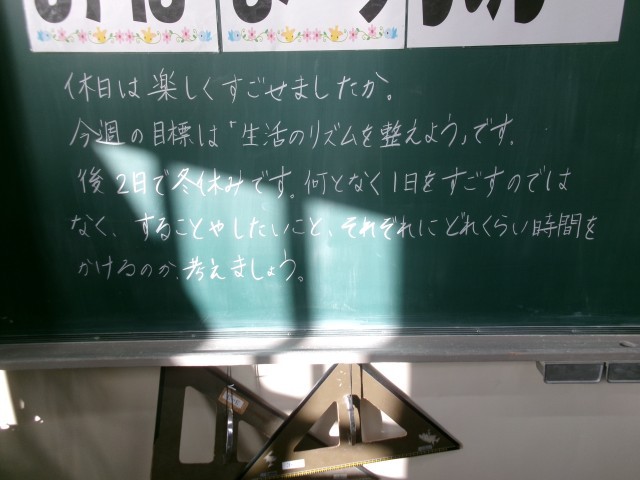 休日は楽しくすごせましたか。
今週の目標は「生活のリズムを整えよう」です。
後2日で冬休みです。何となく1日をすごすのでは
なく、することやしたいこと、それぞれにどれくらい時間を
かけるのか、考えましょう。